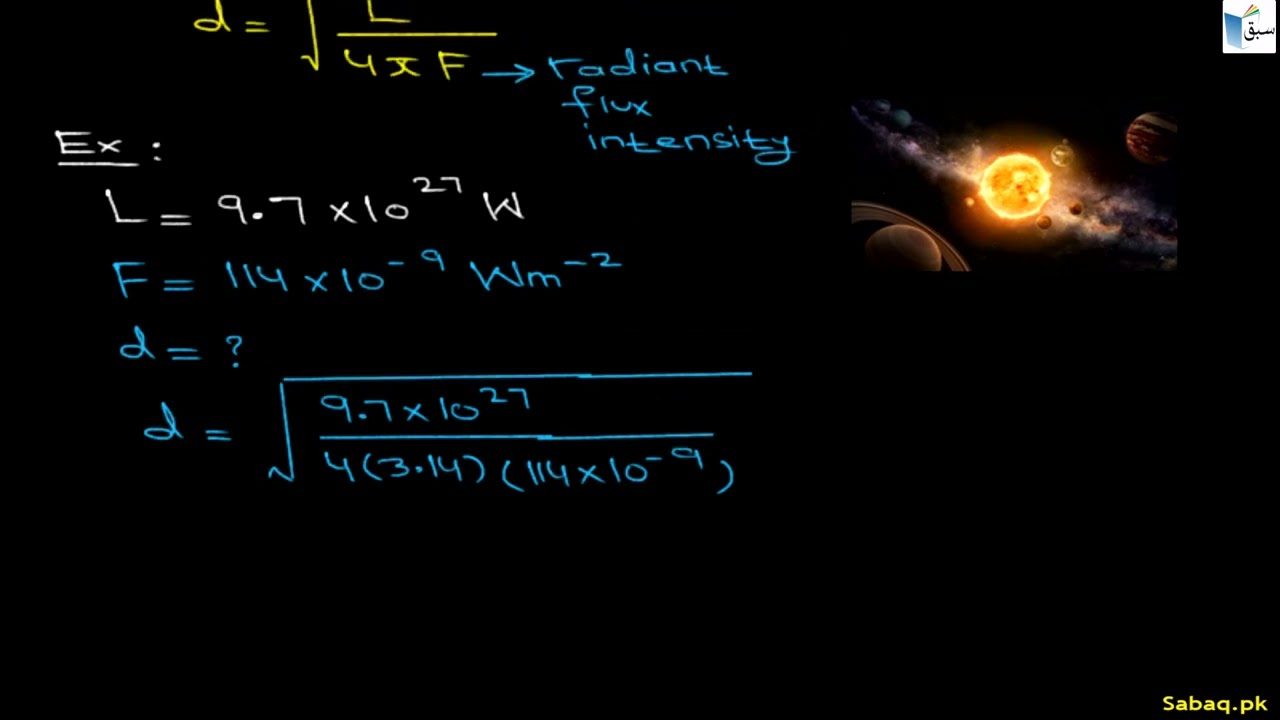 سبق
d = √ L / 4πF → radiant
flux
intensity
Ex :
L = 9.7 × 10²⁷ W
F = 114 × 10⁻⁹ Wm⁻²
d = ?
d = √ 9.7 × 10²⁷ / 4(3.14)(114 × 10⁻⁹)
Sabaq.pk